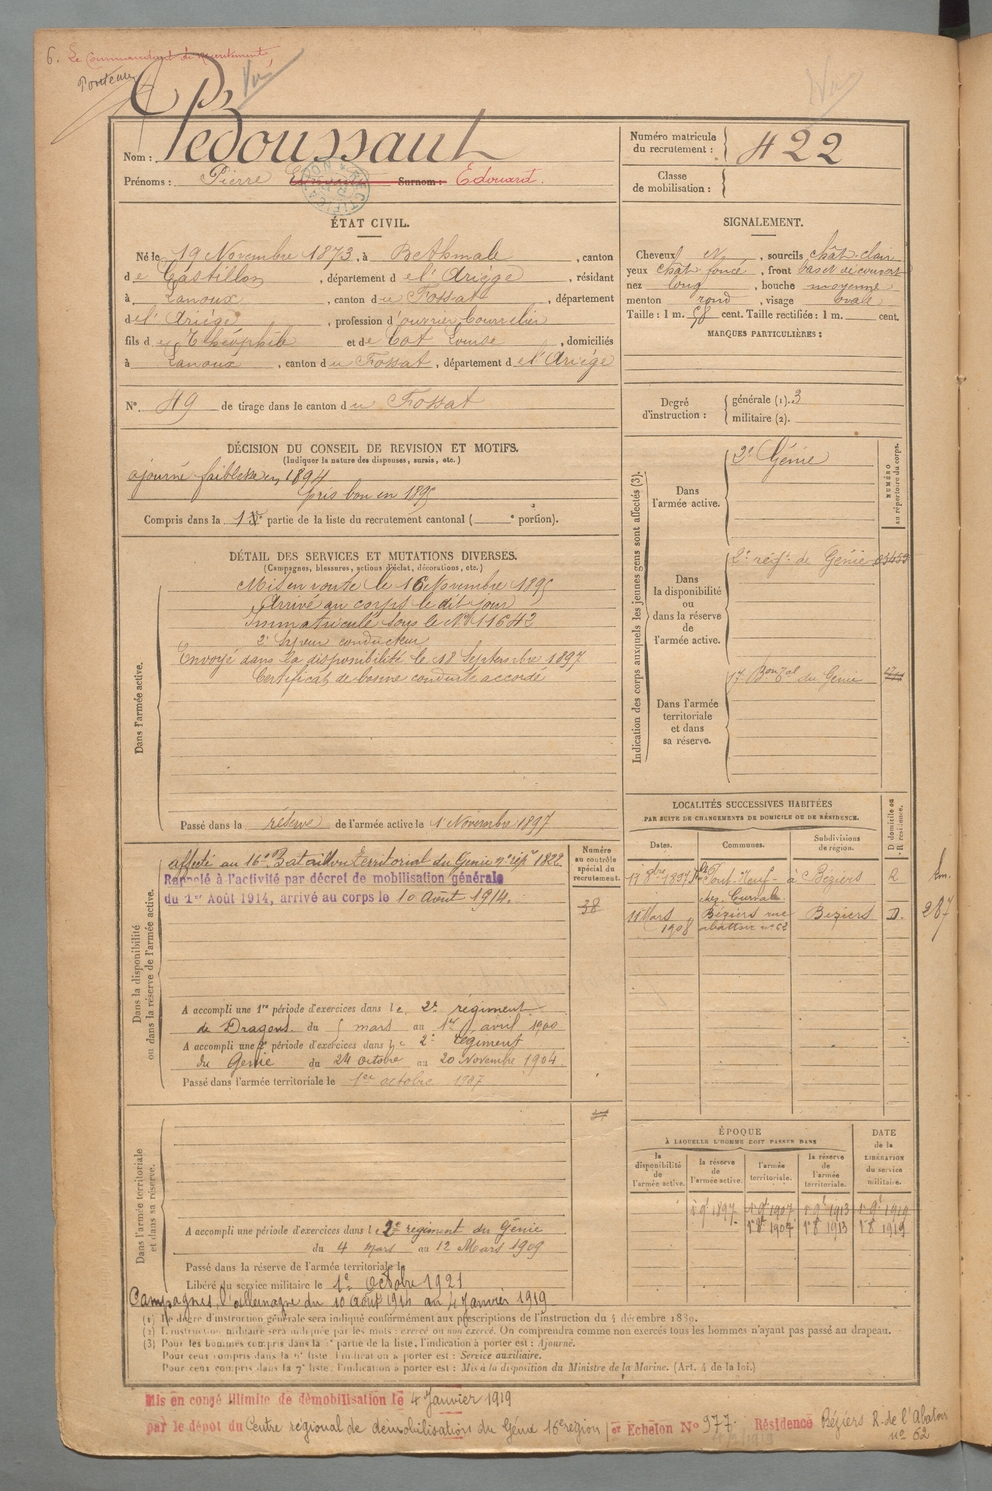 6. Le Commandant de recrutement,
Vu
Nom : Pédoussaut
Prénoms : Pierre Surnom : Edouard.
Numéro matricule du recrutement : 422
Classe de mobilisation :
ÉTAT CIVIL.
Né le 19 Novembre 1873, à Bethmale, canton
de Castillon, département de l'Ariège, résidant
à Lanoux, canton du Fossat, département
de l'Ariège, profession d'ouvrier bourrelier
fils de Théophile et de Cot Louise, domiciliés
à Lanoux, canton du Fossat, département de l'Ariège
N° 49 de tirage dans le canton du Fossat
SIGNALEMENT.
Cheveux N, sourcils chât. clair
yeux chât foncé, front bas et découvert
nez long, bouche moyenne
menton rond, visage ovale
Taille : 1 m. 58 cent. Taille rectifiée : 1 m. cent.
MARQUES PARTICULIÈRES :
Degré d'instruction : générale (1). 3
militaire (2).
DÉCISION DU CONSEIL DE REVISION ET MOTIFS.
(Indiquer la nature des dispenses, sursis, etc.)
ajourné faiblesse en 1894
pris bon en 1895
Compris dans la 1re partie de la liste du recrutement cantonal ( e portion).
DÉTAIL DES SERVICES ET MUTATIONS DIVERSES.
(Campagnes, blessures, actions d'éclat, décorations, etc.)
Dans l'armée active.
Mis en route le 16 Novembre 1895
Arrivé au corps le dit jour
Immatriculé sous le N° 11642
2e Sapeur conducteur
Envoyé dans la disponibilité le 18 Septembre 1897
Certificat de bonne conduite accordé
Passé dans la réserve de l'armée active le 1 Novembre 1897
Indication des corps auxquels les jeunes gens sont affectés (3).
NUMÉRO au répertoire du corps.
Dans l'armée active.
2e Génie
Dans la disponibilité ou dans la réserve de l'armée active.
2e régt. de Génie
Dans l'armée territoriale et dans sa réserve.
17 Bon Tal du Génie
LOCALITÉS SUCCESSIVES HABITÉES
PAR SUITE DE CHANGEMENTS DE DOMICILE OU DE RÉSIDENCE.
Dates. Communes. Subdivisions de région. D domicile ou R résidence.
Pont-Neuf à Béziers R
11 Mars 1908 Béziers rue abattoir n° 62 Béziers D.
km. 287
Dans la disponibilité ou dans la réserve de l'armée active.
Numéro au contrôle spécial du recrutement.
38
affecté au 16e Bataillon territorial du Génie
Rappelé à l'activité par décret de mobilisation générale
du 1er Août 1914, arrivé au corps le 10 Août 1914.
A accompli une 1re période d'exercices dans le 2e régiment
de Dragons du 5 mars au 1er avril 1900
A accompli une 2e période d'exercices dans le 2e régiment
du Génie du 24 Octobre au 20 Novembre 1904.
Passé dans l'armée territoriale le 1er octobre 1907
Dans l'armée territoriale et dans sa réserve.
A accompli une période d'exercices dans le 2e régiment du Génie
du 4 mars au 12 Mars 1909
Passé dans la réserve de l'armée territoriale le
Libéré du service militaire le 1er Octobre 1921
Campagnes, l'allemagne du 10 août 1914 au 4 Janvier 1919
ÉPOQUE
À LAQUELLE L'HOMME DOIT PASSER DANS
la disponibilité de l'armée active. la réserve de l'armée active. l'armée territoriale. la réserve de l'armée territoriale.
DATE de la LIBÉRATION du service militaire.
1 9bre 1897. 1 9bre 1907 1 9bre 1913 1 9bre 1919
1 8bre 1907 1 8bre 1913 1 8bre 1919
(1) Le degré d'instruction générale sera indiqué conformément aux prescriptions de l'instruction du 4 décembre 1889.
(2) L'instruction militaire sera indiquée par les mots : exercé ou non exercé. On comprendra comme non exercés tous les hommes n'ayant pas passé au drapeau.
(3) Pour les hommes compris dans la partie de la liste, l'indication à porter est : Ajourné.
Pour ceux compris dans la liste, l'indication à porter est : Service auxiliaire.
Pour ceux compris dans la 7e liste, l'indication à porter est : Mis à la disposition du Ministre de la Marine. (Art. 4 de la loi.)
Mis en congé illimité de démobilisation le 4 Janvier 1919
par le dépôt du Centre régional de démobilisation du Génie 16e région 1er Echelon N° 977. Résidence Béziers R. de l'Abattoir n° 62